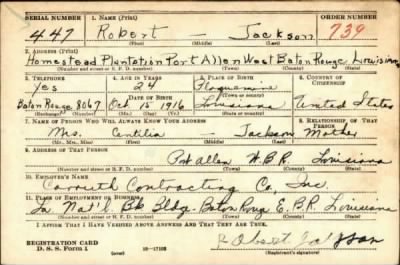 SERIAL NUMBER 1. NAME (Print) ORDER NUMBER
447 Robert — Jackson 739
(First) (Middle) (Last)
2. ADDRESS (Print)
Homestead Plantation Port Allen West Baton Rouge Louisiana
(Number and street or R. F. D. number) (Town) (County) (State)
3. TELEPHONE 4. AGE IN YEARS 5. PLACE OF BIRTH 6. COUNTRY OF CITIZENSHIP
Yes 24 Plaquemine
DATE OF BIRTH (Town or county)
Baton Rouge 8067 Oct 15 1916 Louisiana United States
(Exchange) (Number) (Mo.) (Day) (Yr.) (State or country)
7. NAME OF PERSON WHO WILL ALWAYS KNOW YOUR ADDRESS 8. RELATIONSHIP OF THAT PERSON
Mrs. — Jackson Mother
(Mr., Mrs., Miss) (First) (Middle) (Last)
9. ADDRESS OF THAT PERSON
Port Allen W.B.R. Louisiana
(Number and street or R. F. D. number) (Town) (County) (State)
10. EMPLOYER'S NAME
Contracting Co, Inc.
11. PLACE OF EMPLOYMENT OR BUSINESS
La Nat'l. Bk Bldg. Baton Rouge E.B.R. Louisiana
(Number and street or R. F. D. number) (Town) (County) (State)
I AFFIRM THAT I HAVE VERIFIED ABOVE ANSWERS AND THAT THEY ARE TRUE.
Robert Jackson
REGISTRATION CARD
D. S. S. Form 1 (over) 16—17105 (Registrant's signature)